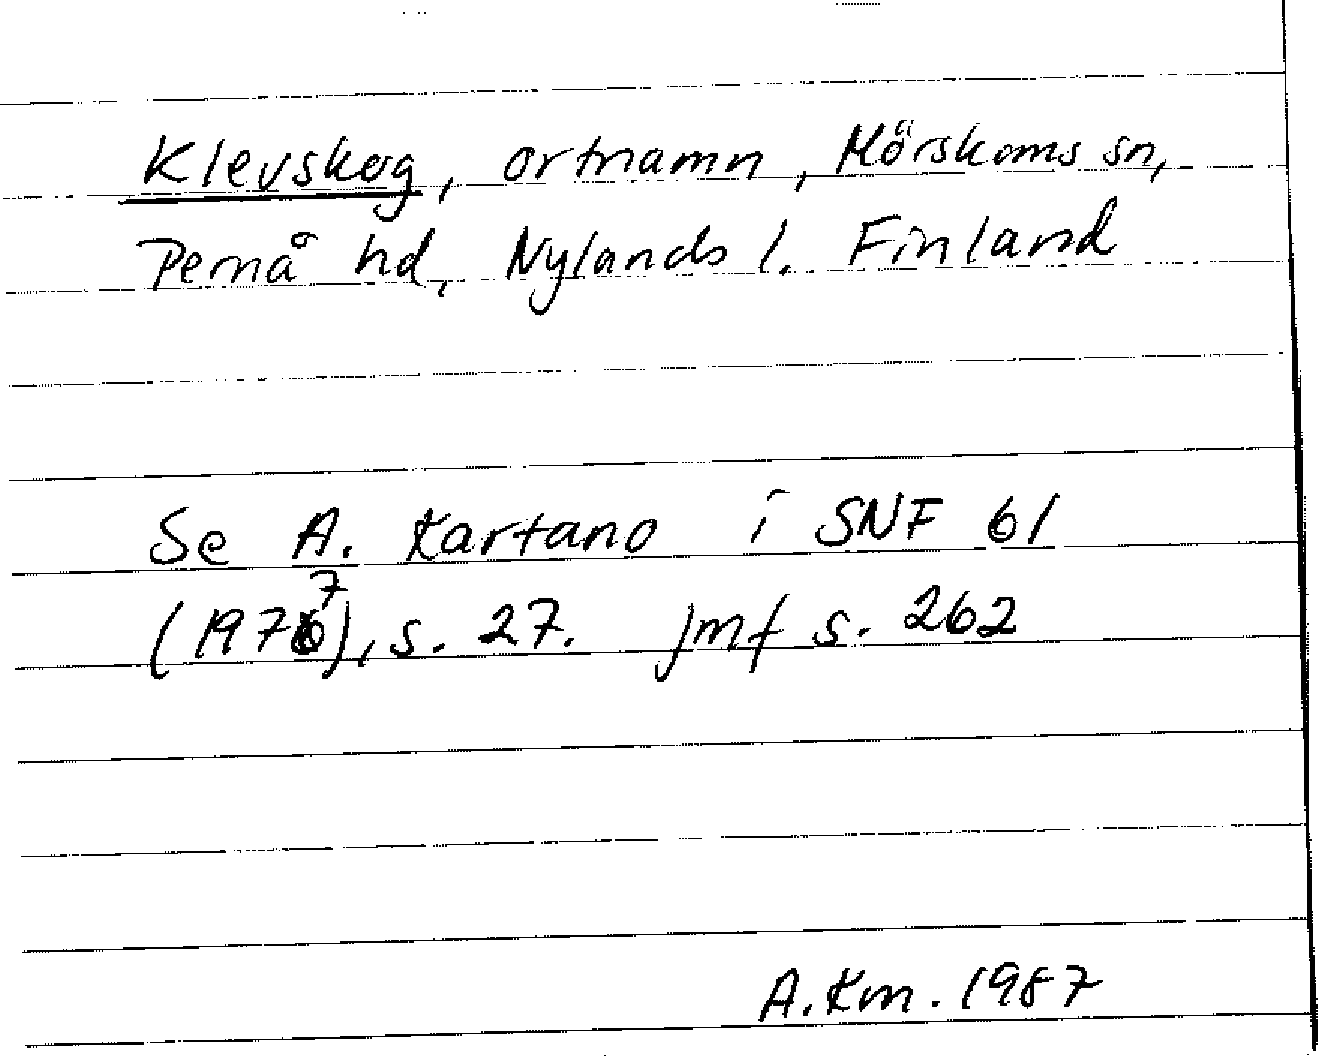 Klevskog, ortnamn, Mörskoms sn,
Pernå hd, Nylands l. Finland
Se A. Kartano i SNF 61
(1977), s. 27. jmf s. 262
A.Km. 1987